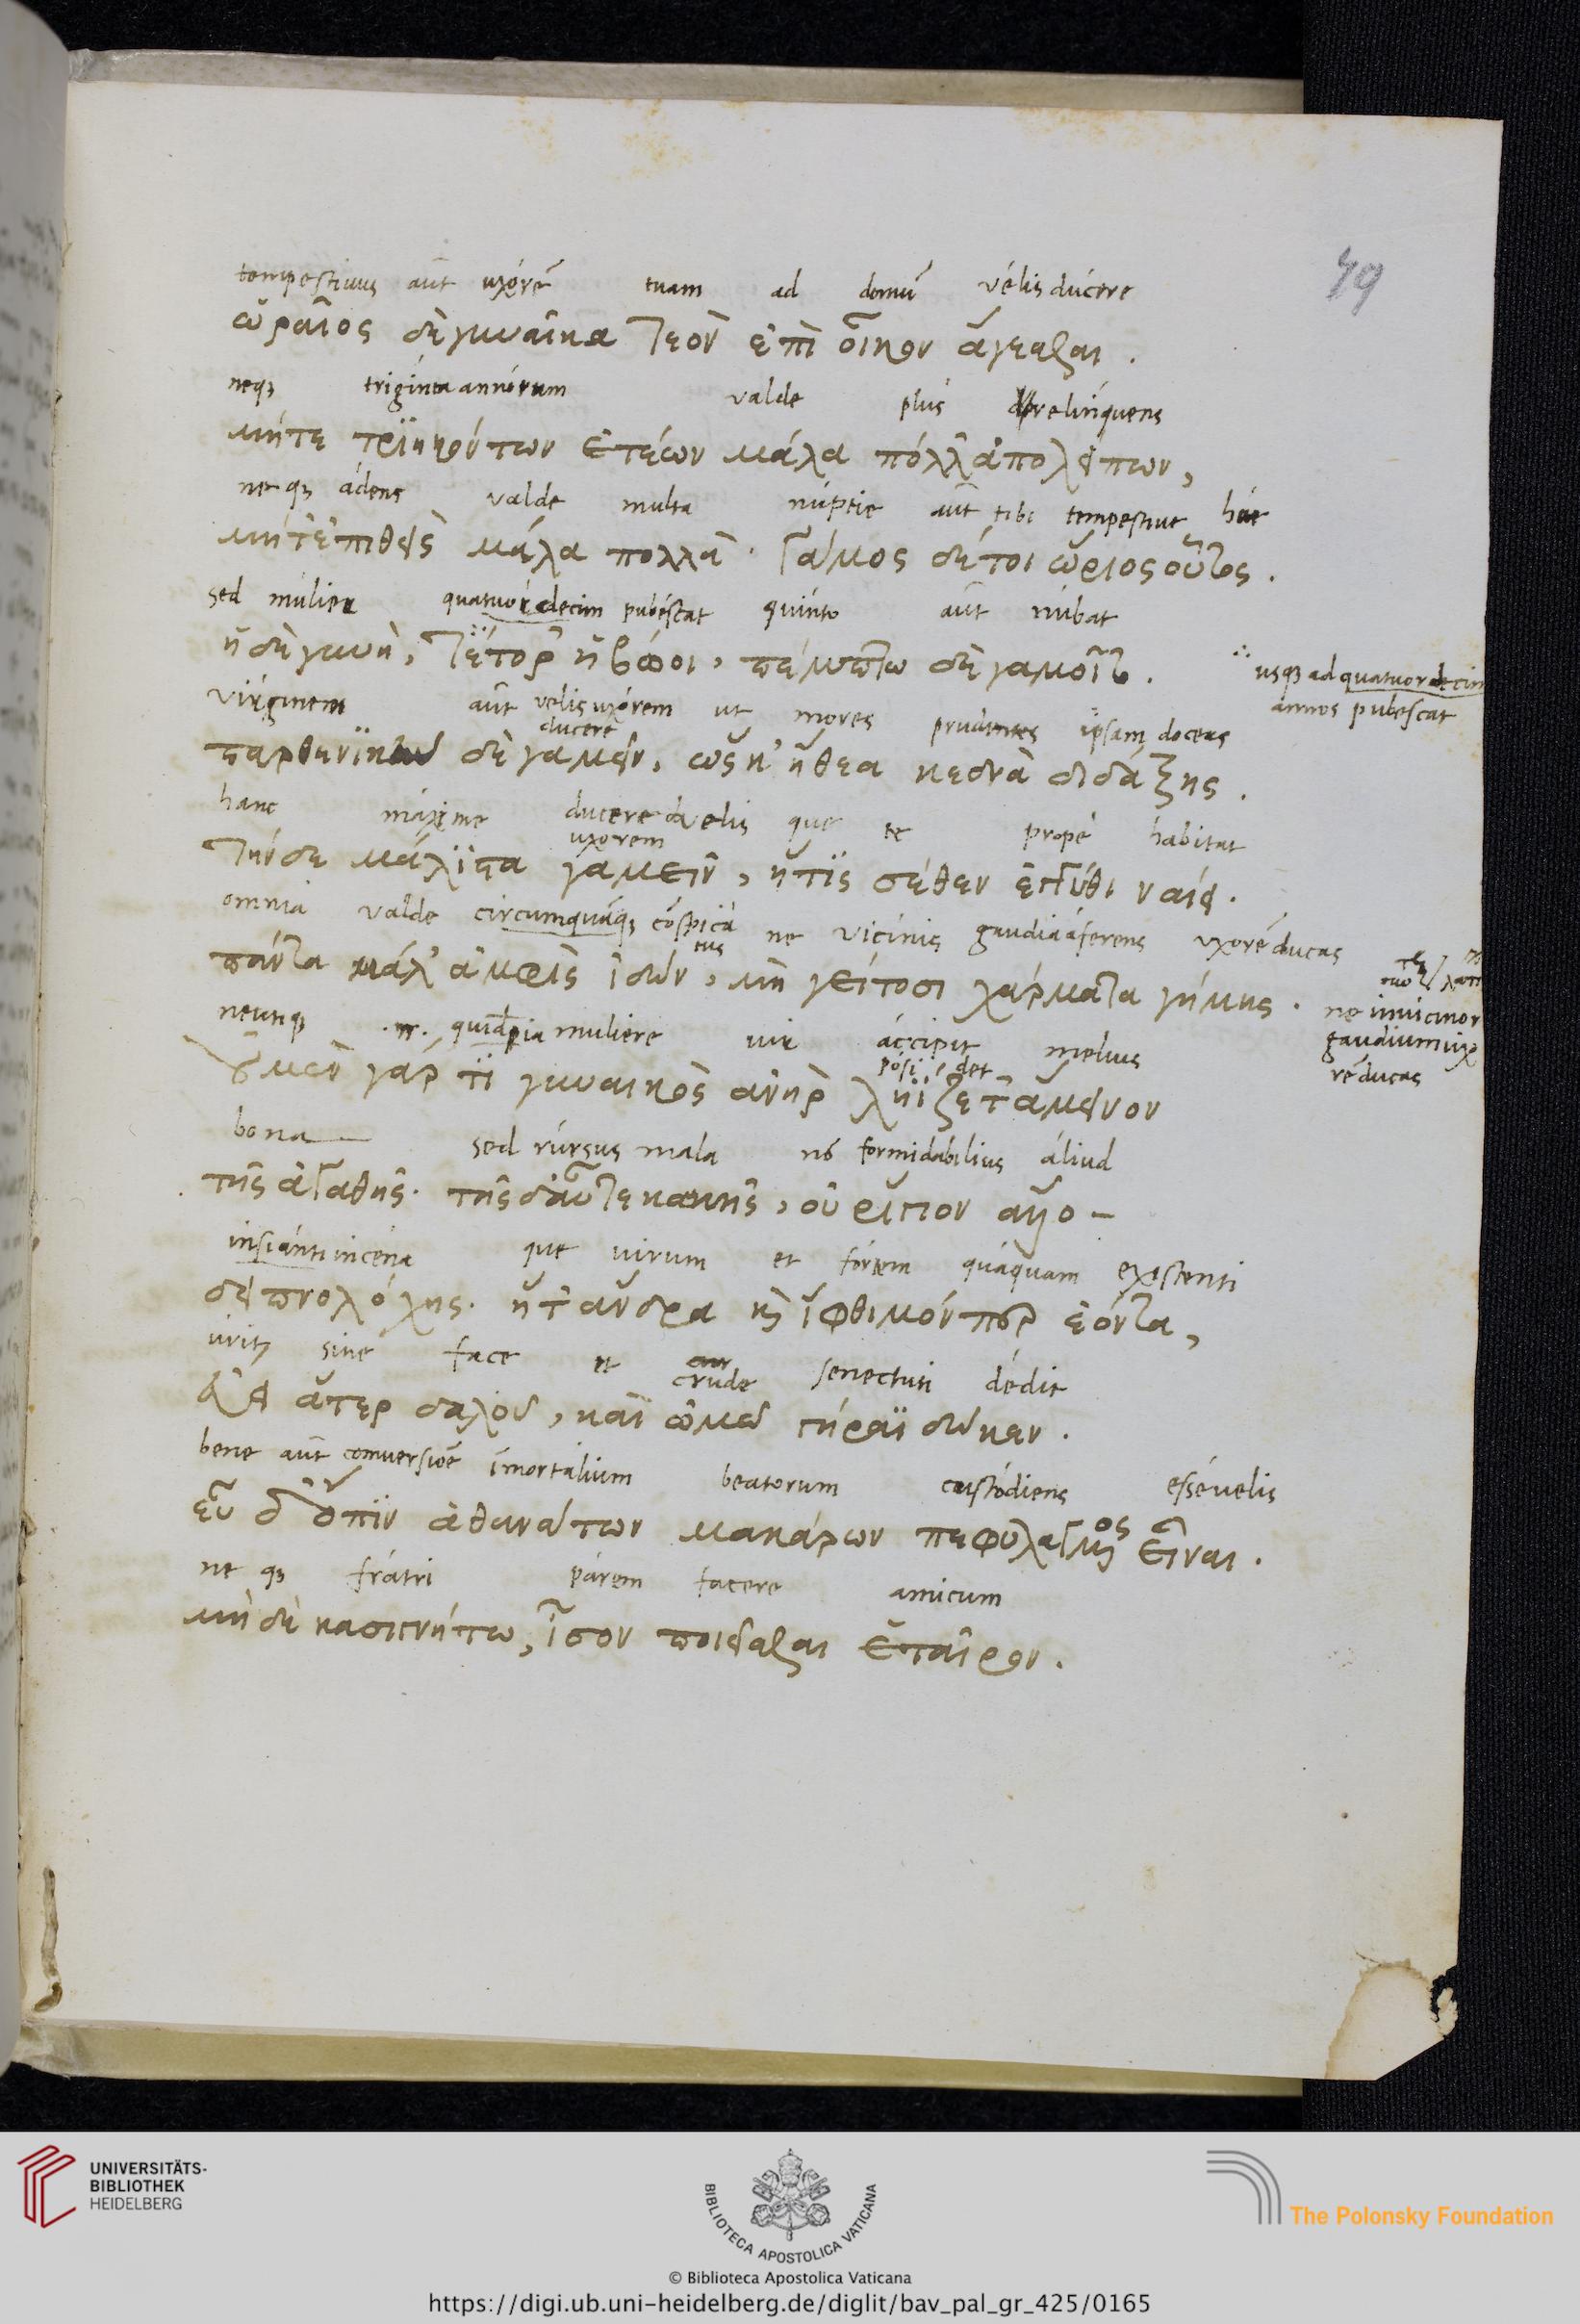 49
tempestiuus aūt uxórē tuam ad domū vélis dúcere
ὡραῖος δὲ γυναῖκα τεὸν ἐπὶ οἶκον ἄγεσθαι .
neqꝫ trigínta annórum valde plus relínquens
μήτε τριηκόντων ἐτέων μάλα πόλλ' ἀπολείπων,
neqꝫ ádens valde multa núptie aūt tibi tempestiue
μήτ' ἐπιθεὶς μάλα πολλά · γάμος δέ τοι ὥριος οὗτος .
sed múlier quatuórdecim pubéscat quinto aūt núbat
ἡ δὲ γυνὴ, τέτορ' ἡβώοι, πέμπτω δὲ γαμοῖτο .
∴ usqꝫ ad quatuordecim
annos pubescat
vírginem aūt velis uxórem ut mores prudentes ipsam doceas
ducere
παρθενικὴν δὲ γαμεῖν, ὥς κ' ἤθεα κεδνὰ διδάξῃς .
hanc máxime ducere velis que te prope habitat
uxorem
τήνδε μάλιστα γαμεῖν, ἥτις σέθεν ἐγγύθι ναίει .
omnia valde circumquáqꝫ cōspicá
tus ne vicínis gaudia áferens uxorē ducas
πάντα μάλ' ἀμφὶς ἰδών, μὴ γείτοσι χάρματα γήμῃς .
ne
gaudium uxo
rē ducas
neutiqꝫ quidpiam muliere uir áccipit melius
οὐ μὲν γάρ τι γυναικὸς ἀνὴρ ληΐζετ' ἄμεινον
bona sed rúrsus mala nō formidabilius áliud
τῆς ἀγαθῆς · τῆς δ' αὖτε κακῆς, οὐ ῥίγιον ἄλλο –
insiánti in cena que uirum et fórtem quáquam existenti
δειπνολόχης · ἥτ' ἄνδρα καὶ ἴφθιμόν περ ἐόντα,
sine face et crude senectuti dédit
εὕει ἄτερ δαλοῦ, καὶ ὠμῷ γήραϊ δῶκεν .
bene aūt conuersiōē imortálium beatorum custódiens esse uelis
εὖ δ' ὄπιν ἀθανάτων μακάρων πεφυλαγμένος εἶναι .
ne qꝫ frátri párem facere amicum
μὴ δὲ κασιγνήτω, ἶσον ποιεῖσθαι ἑταῖρον .
UNIVERSITÄTS-
BIBLIOTHEK
HEIDELBERG
BIBLIOTECA APOSTOLICA VATICANA
The Polonsky Foundation
© Biblioteca Apostolica Vaticana
https://digi.ub.uni-heidelberg.de/diglit/bav_pal_gr_425/0165